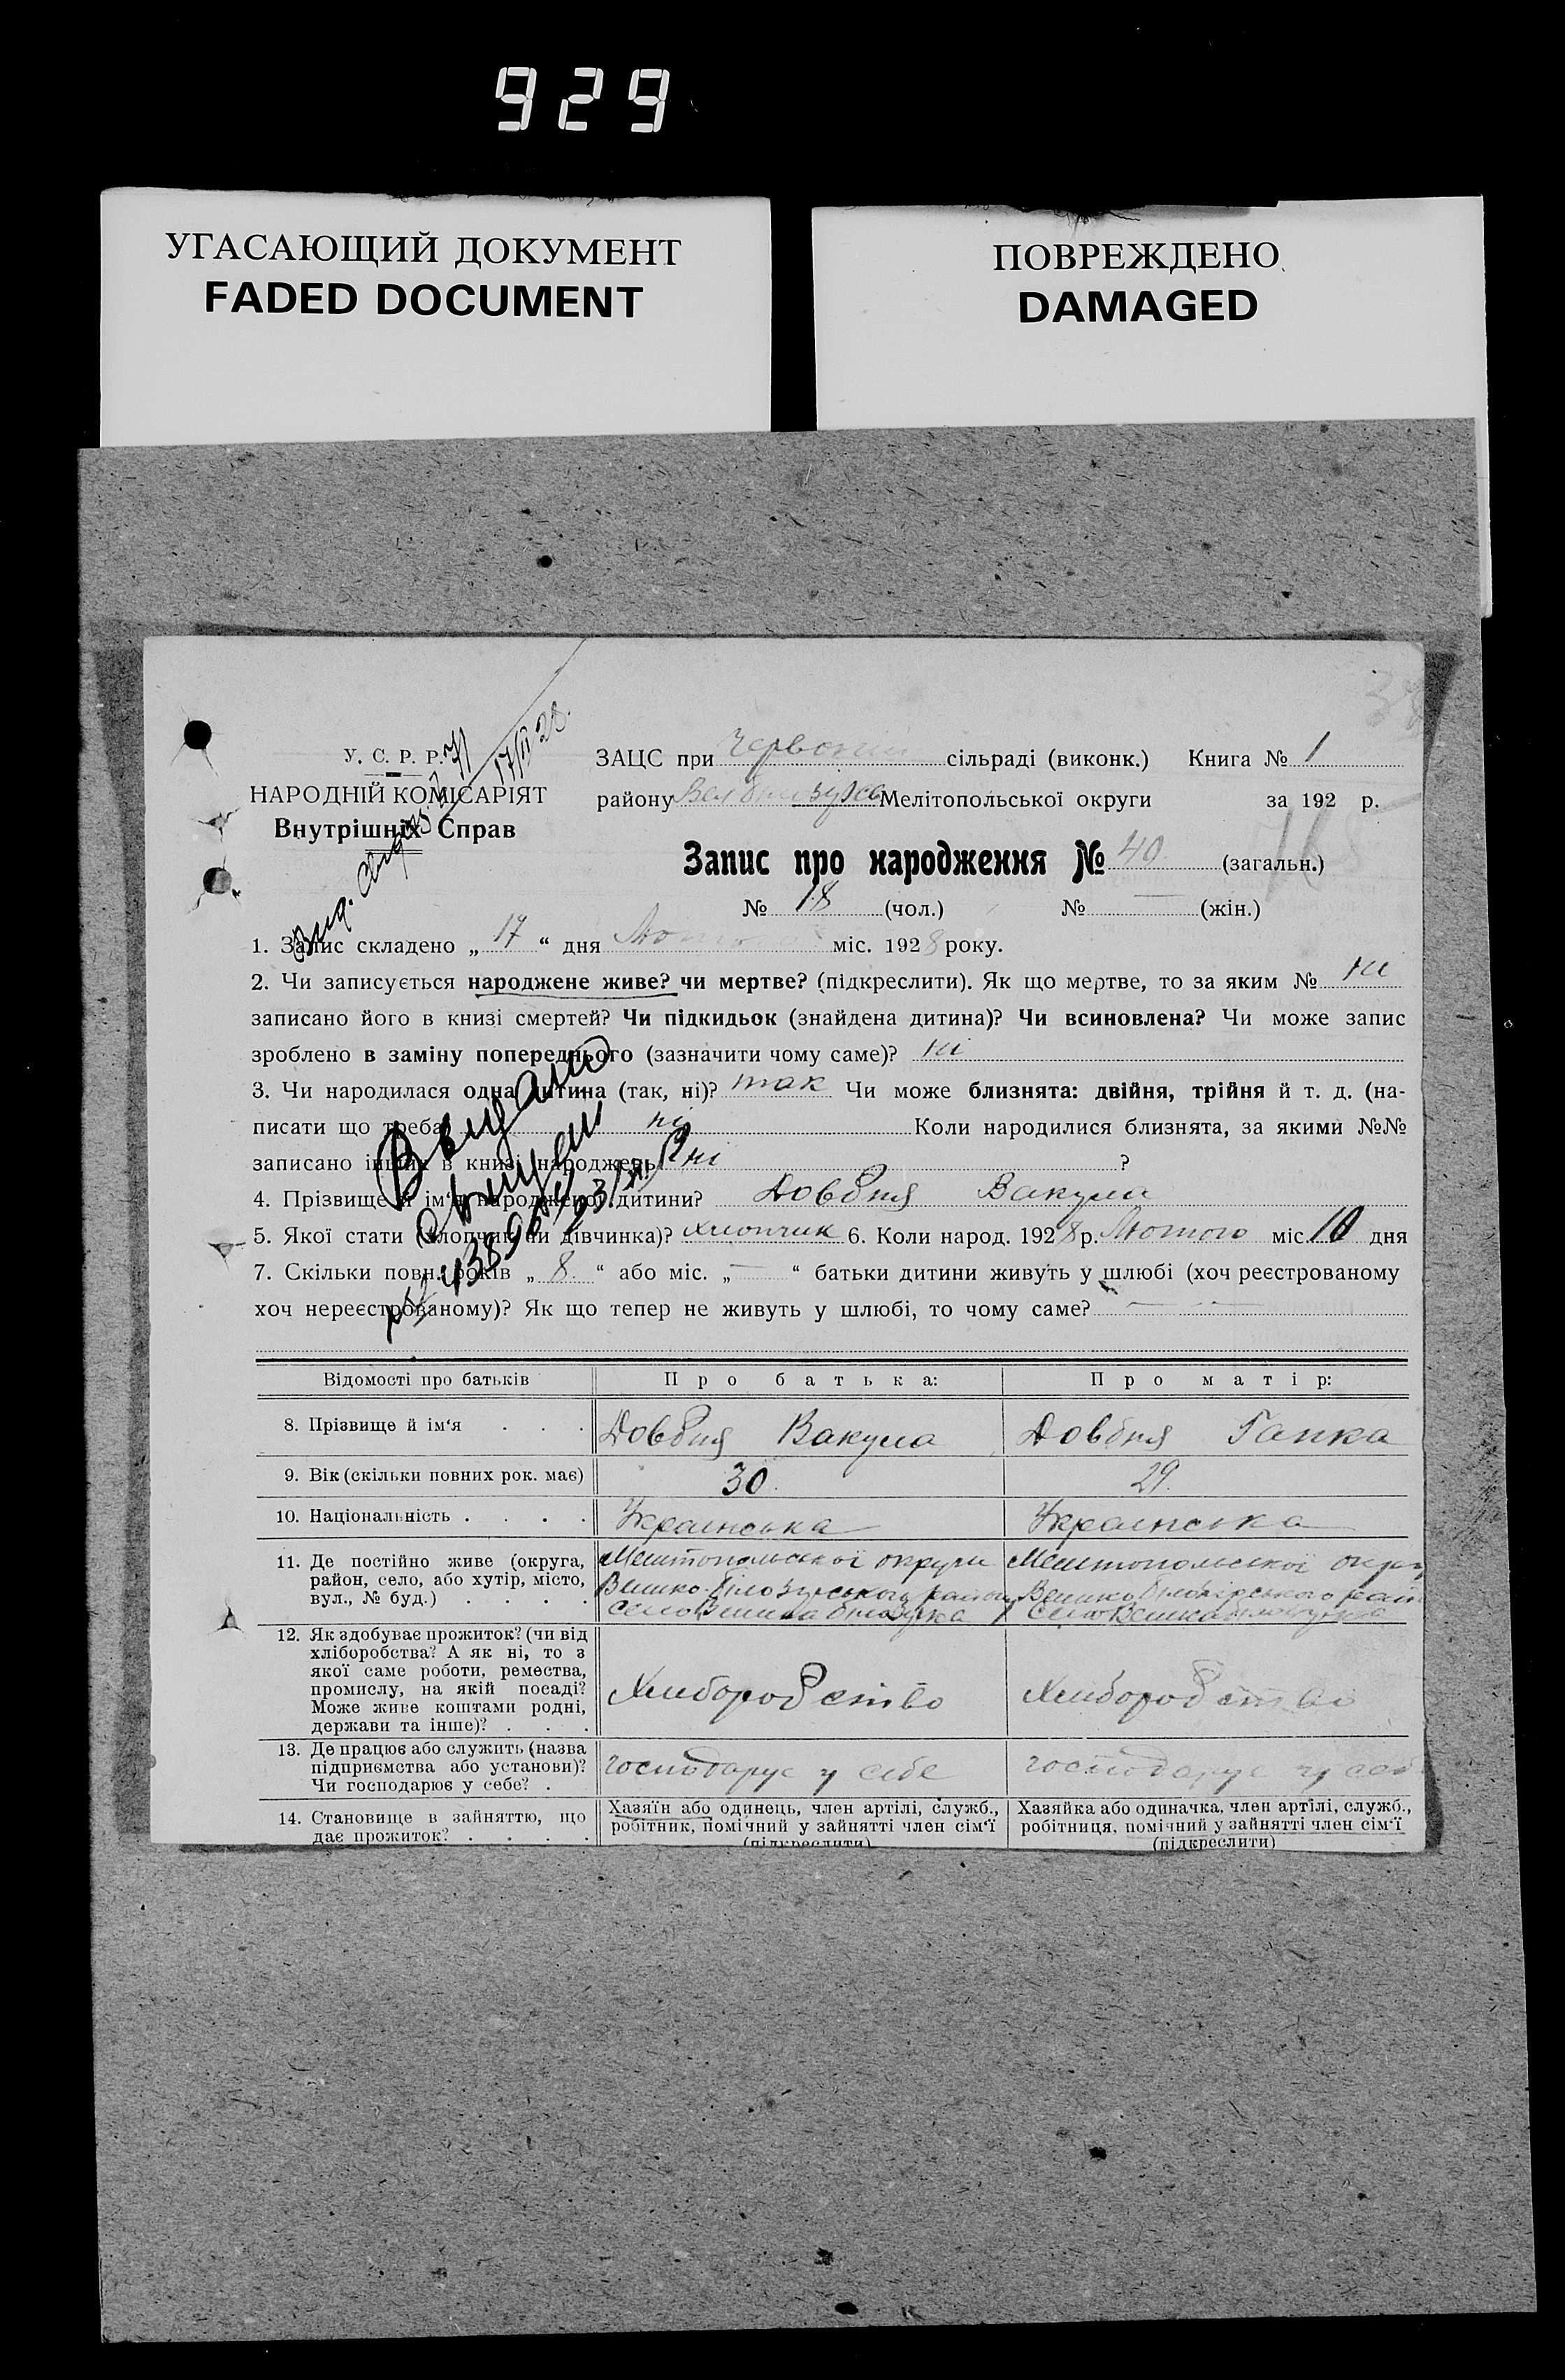 929
УГАСАЮЩИЙ ДОКУМЕНТ
FADED DOCUMENT
ПОВРЕЖДЕНО
DAMAGED
У. С. Р. Р.
НАРОДНІЙ КОМІСАРІЯТ
Внутрішніх Справ
17/II 28.
ЗАЦС при Червоній сільраді (виконк.) Книга № 1
району Вел Білозірсь Мелітопольської округи за 192 р.
Запис про народження № 40 (загальн.)
№ 18 (чол.) № — (жін.)
1. Запис складено „ 17 “ дня Лютого міс. 1928 року.
2. Чи записується народжене живе? чи мертве? (підкреслити). Як що мертве, то за яким № ні
записано його в книзі смертей? Чи підкидьок (знайдена дитина)? Чи всиновлена? Чи може запис
зроблено в заміну попереднього (зазначити чому саме)? ні
3. Чи народилася одна дитина (так, ні)? так Чи може близнята: двійня, трійня й т. д. (на-
писати що треба) ні Коли народилися близнята, за якими №№
записано інших в книзі народжень ні ?
4. Прізвище й ім‘я народженої дитини? Довбня Вакула
5. Якої стати (хлопчик чи дівчинка)? хлопчик 6. Коли народ. 1928 р. Лютого міс. 10 дня
7. Скільки повн. років „ 8 “ або міс. „ — “ батьки дитини живуть у шлюбі (хоч реєстрованому
хоч нереєстрованому)? Як що тепер не живуть у шлюбі, то чому саме? — —
Відомості про батьків Про батька: Про матір:
8. Прізвище й ім‘я . . . Довбня Вакула Довбня Гапка
9. Вік (скільки повних рок. має) 30. 29.
10. Національність . . . . Українська Українська
11. Де постійно живе (округа, Мелітопольської округи Мелітопольської округ
район, село, або хутір, місто, Велико-білозірського району Велико білозірського рай
вул., № буд.) . . . . село Велика білозірка село Велика білозірка
12. Як здобуває прожиток? (чи від
хліборобства? А як ні, то з
якої саме роботи, ремества,
промислу, на якій посаді? Хлиборобство Хлиборобство
Може живе коштами родні,
держави та інше)? . . .
13. Де працює або служить (назва
підприємства або установи)? господарує у себе господарує у себ
Чи господарює у себе? .
14. Становище в зайняттю, що Хазяїн або одинець, член артілі, служб., Хазяйка або одиначка, член артілі, служб.,
дає прожиток? . . . . робітник, помічний у зайнятті член сім‘ї робітниця, помічний у зайнятті член сім‘ї
(підкреслити) (підкреслити)